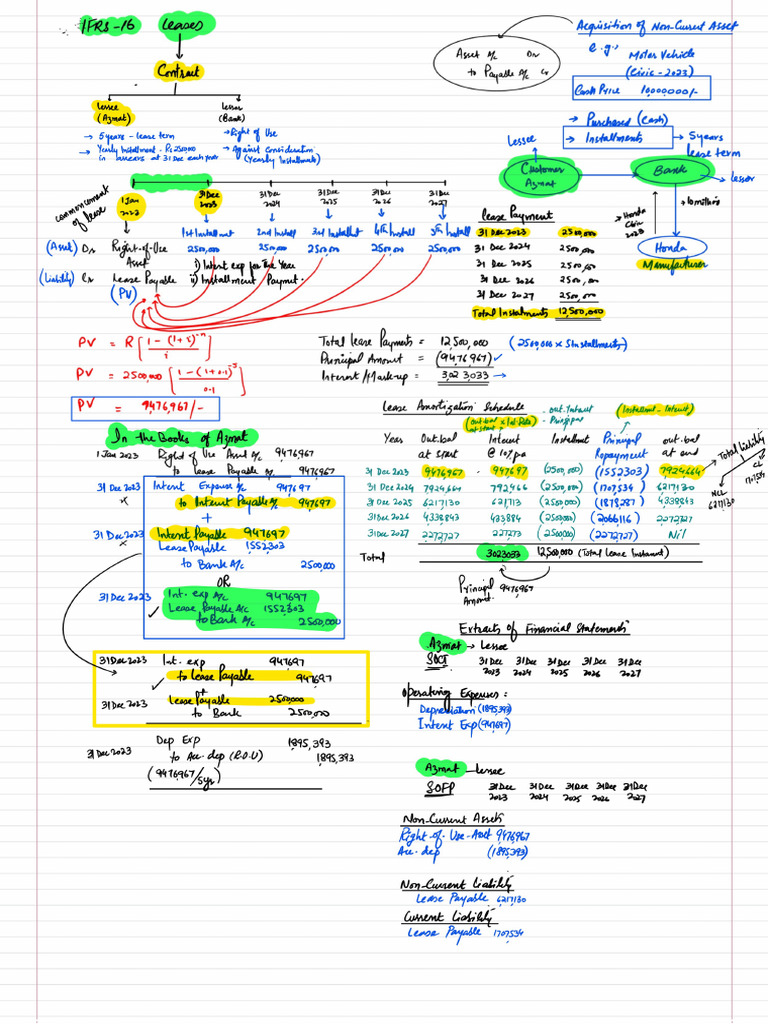 IFRS-16 Leases
Contract
Lessee
(Azmat)
→ 5 years - lease term
→ Yearly Installment - Rs 2500,000
in arrears at 31 Dec each year
Lessor
(Bank)
→ Right of Use
→ Against Consideration
(Yearly Installments)
Acquisition of Non-Current Asset
e.g:
Motor Vehicle
(Civic - 2023)
Cash Price 10,000,000/-
Asset A/c Dr
to Payable A/c Cr
→ Purchased (Cash)
→ Installments → 5 years
lease term
Lessee
Customer
Azmat
Bank
Lessor
10 million
Honda
Civic
2023
Honda
Manufacturer
commencement
of lease
1 Jan
2023
31 Dec
2023
31 Dec
2024
31 Dec
2025
31 Dec
2026
31 Dec
2027
1st Installment 2nd Install 3rd Installmt 4th Install 5th Install
(Asset) Dr Right-of-Use 2500,000 2500,000 2500,000 2500,000 2500,000
Asset
(Liability) Cr Lease Payable
(PV)
i) Interest exp for the Year
ii) Installment Paymnt.
Lease Payment
31 Dec 2023 2500,000
31 Dec 2024 2500,000
31 Dec 2025 2500,000
31 Dec 2026 2500,000
31 Dec 2027 2500,000
Total Instalments 12,500,000
PV = R [ 1 - (1+i)^-n / i ]
PV = 2500,000 [ 1 - (1+0.1)^-5 / 0.1 ]
PV = 9476,967/-
Total lease Payments = 12,500,000 (2500,000 x 5 Installments)
Principal Amount = (9476,967) ✓
Interest/Mark-up = 3,023,033 →
In the Books of Azmat
1 Jan 2023 Right of Use Asset A/c 9476967
to lease Payable A/c 9476967
31 Dec 2023 Interest Expense A/c 947697
x to Interest Payable A/c 947,697
+
31 Dec 2023 Interest Payable 947697
x Lease Payable 1552303
to Bank A/c 2500,000
OR
31 Dec 2023 Int. exp A/c 947697
✓ Lease Payable A/c 1552,303
to Bank A/c 2500,000
31 Dec 2023 Int. exp 947697
to Lease Payable 947,697
✓ +
31 Dec 2023 Lease Payable 2500,000
to Bank 2500,000
31 Dec 2023 Dep Exp 1895,393
to Acc. dep (R.O.U) 1895,393
(9476967/5yrs)
Lease Amortization Schedule
(out.bal x Int Rate)
at start
(Installment - Interest)
Year Out.bal Interest Installment Principal out.bal
at start @ 10% pa Repayment at end
31 Dec 2023 9476967 947697 (2500,000) (1552303) 7924,664
31 Dec 2024 7924664 792466 (2500,000) (1707534) 6217130
31 Dec 2025 6217130 621713 (2500,000) (1878287) 4338843
31 Dec 2026 4338843 433884 (2500,000) (2066,116) 2272727
31 Dec 2027 2272727 227273 (2500,000) (2272727) Nil
Total 3023033 12,500,000 (Total Lease Instalment)
Total Liability
CL
1707534
NCL
6217130
Principal 9476967
Amount.
Extracts of Financial Statements
Azmat - Lessee
SOCI 31 Dec 31 Dec 31 Dec 31 Dec 31 Dec
2023 2024 2025 2026 2027
Operating Expenses:
Depreciation (1895,393)
Interest Exp (947697)
Azmat - Lessee
SOFP 31 Dec 31 Dec 31 Dec 31 Dec 31 Dec
2023 2024 2025 2026 2027
Non-Current Assets
Right-of-Use-Asset 9476,967
Acc. dep (1895,393)
Non-Current Liability
Lease Payable 6217,130
Current Liability
Lease Payable 1707534